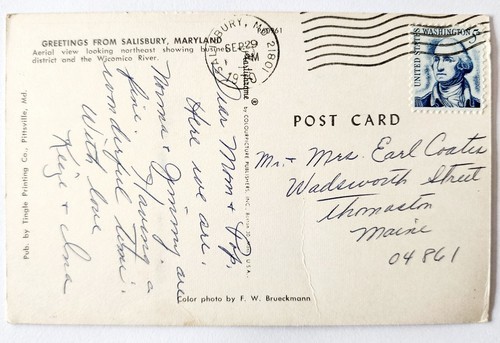 GREETINGS FROM SALISBURY, MARYLAND
Aerial view looking northeast showing business
district and the Wicomico River.
SALISBURY, MD 21801
SEP 29
PM
1970
UNITED STATES
WASHINGTON
5
POST CARD
Dear Mom & Pop,
Here we are.
Norma & Jimmy are
fine. Having a
wonderful time.
With love
Mr. & Mrs. Earl Coates
Wadsworth Street
Thomaston
Maine
04861
Pub. by Tingle Printing Co., Pittsville, Md.
by COLOURPICTURE PUBLISHERS, INC., Boston 30, Mass., U.S.A.
Color photo by F. W. Brueckmann